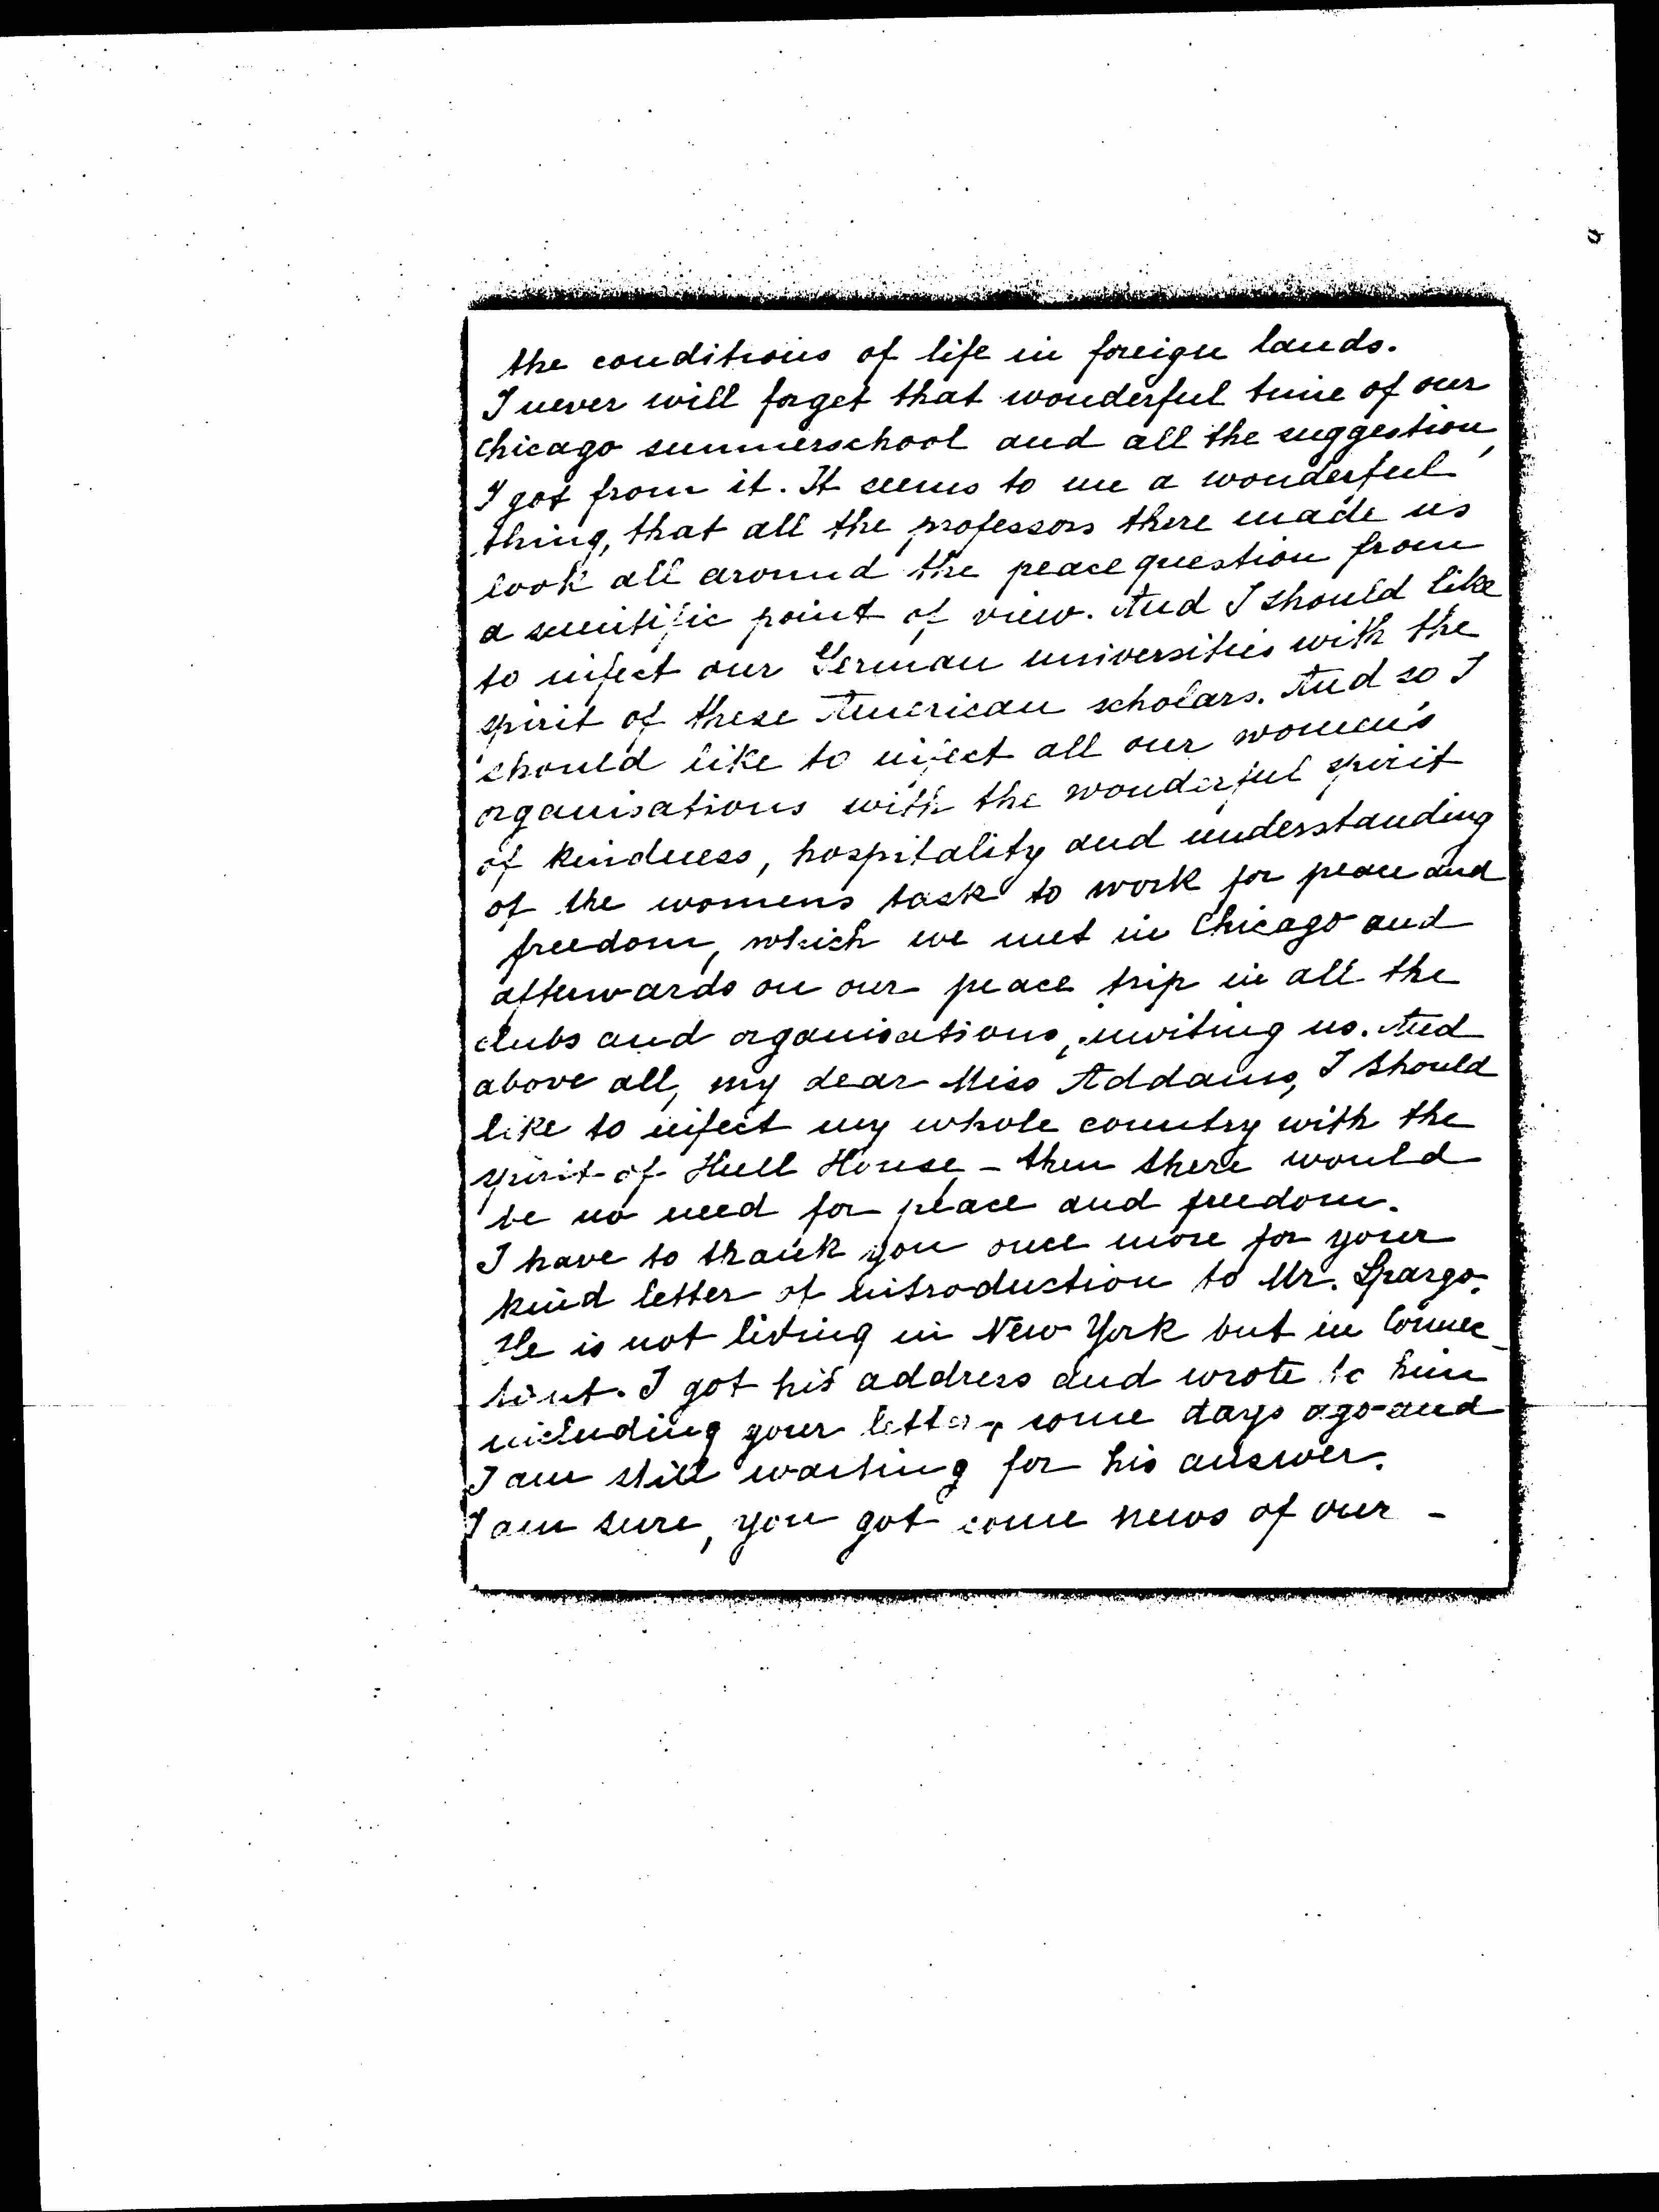 the conditions of life in foreign lands.
I never will forget that wonderful time of our
Chicago summerschool and all the suggestion,
I got from it. It seems to me a wonderful
thing, that all the professors there made us
look all around the peace question from
a scientific point of view. And I should like
to infect our German universities with the
spirit of these American scholars. And so I
should like to infect all our women's
organisations with the wonderful spirit
of kindness, hospitality and understanding
of the womens task to work for peace and
freedom, which we met in Chicago and
afterwards on our peace trip in all the
clubs and organisations, inviting us. And
above all, my dear Miss Addams, I should
like to infect my whole country with the
spirit of Hull House - then there would
be no need for peace and freedom.
I have to thank you once more for your
kind letter of introduction to Mr. Spargo.
He is not living in New York but in Connec-
ticut. I got his address and wrote to him
including your letter, some days ago and
I am still waiting for his answer.
I am sure, you got some news of our -